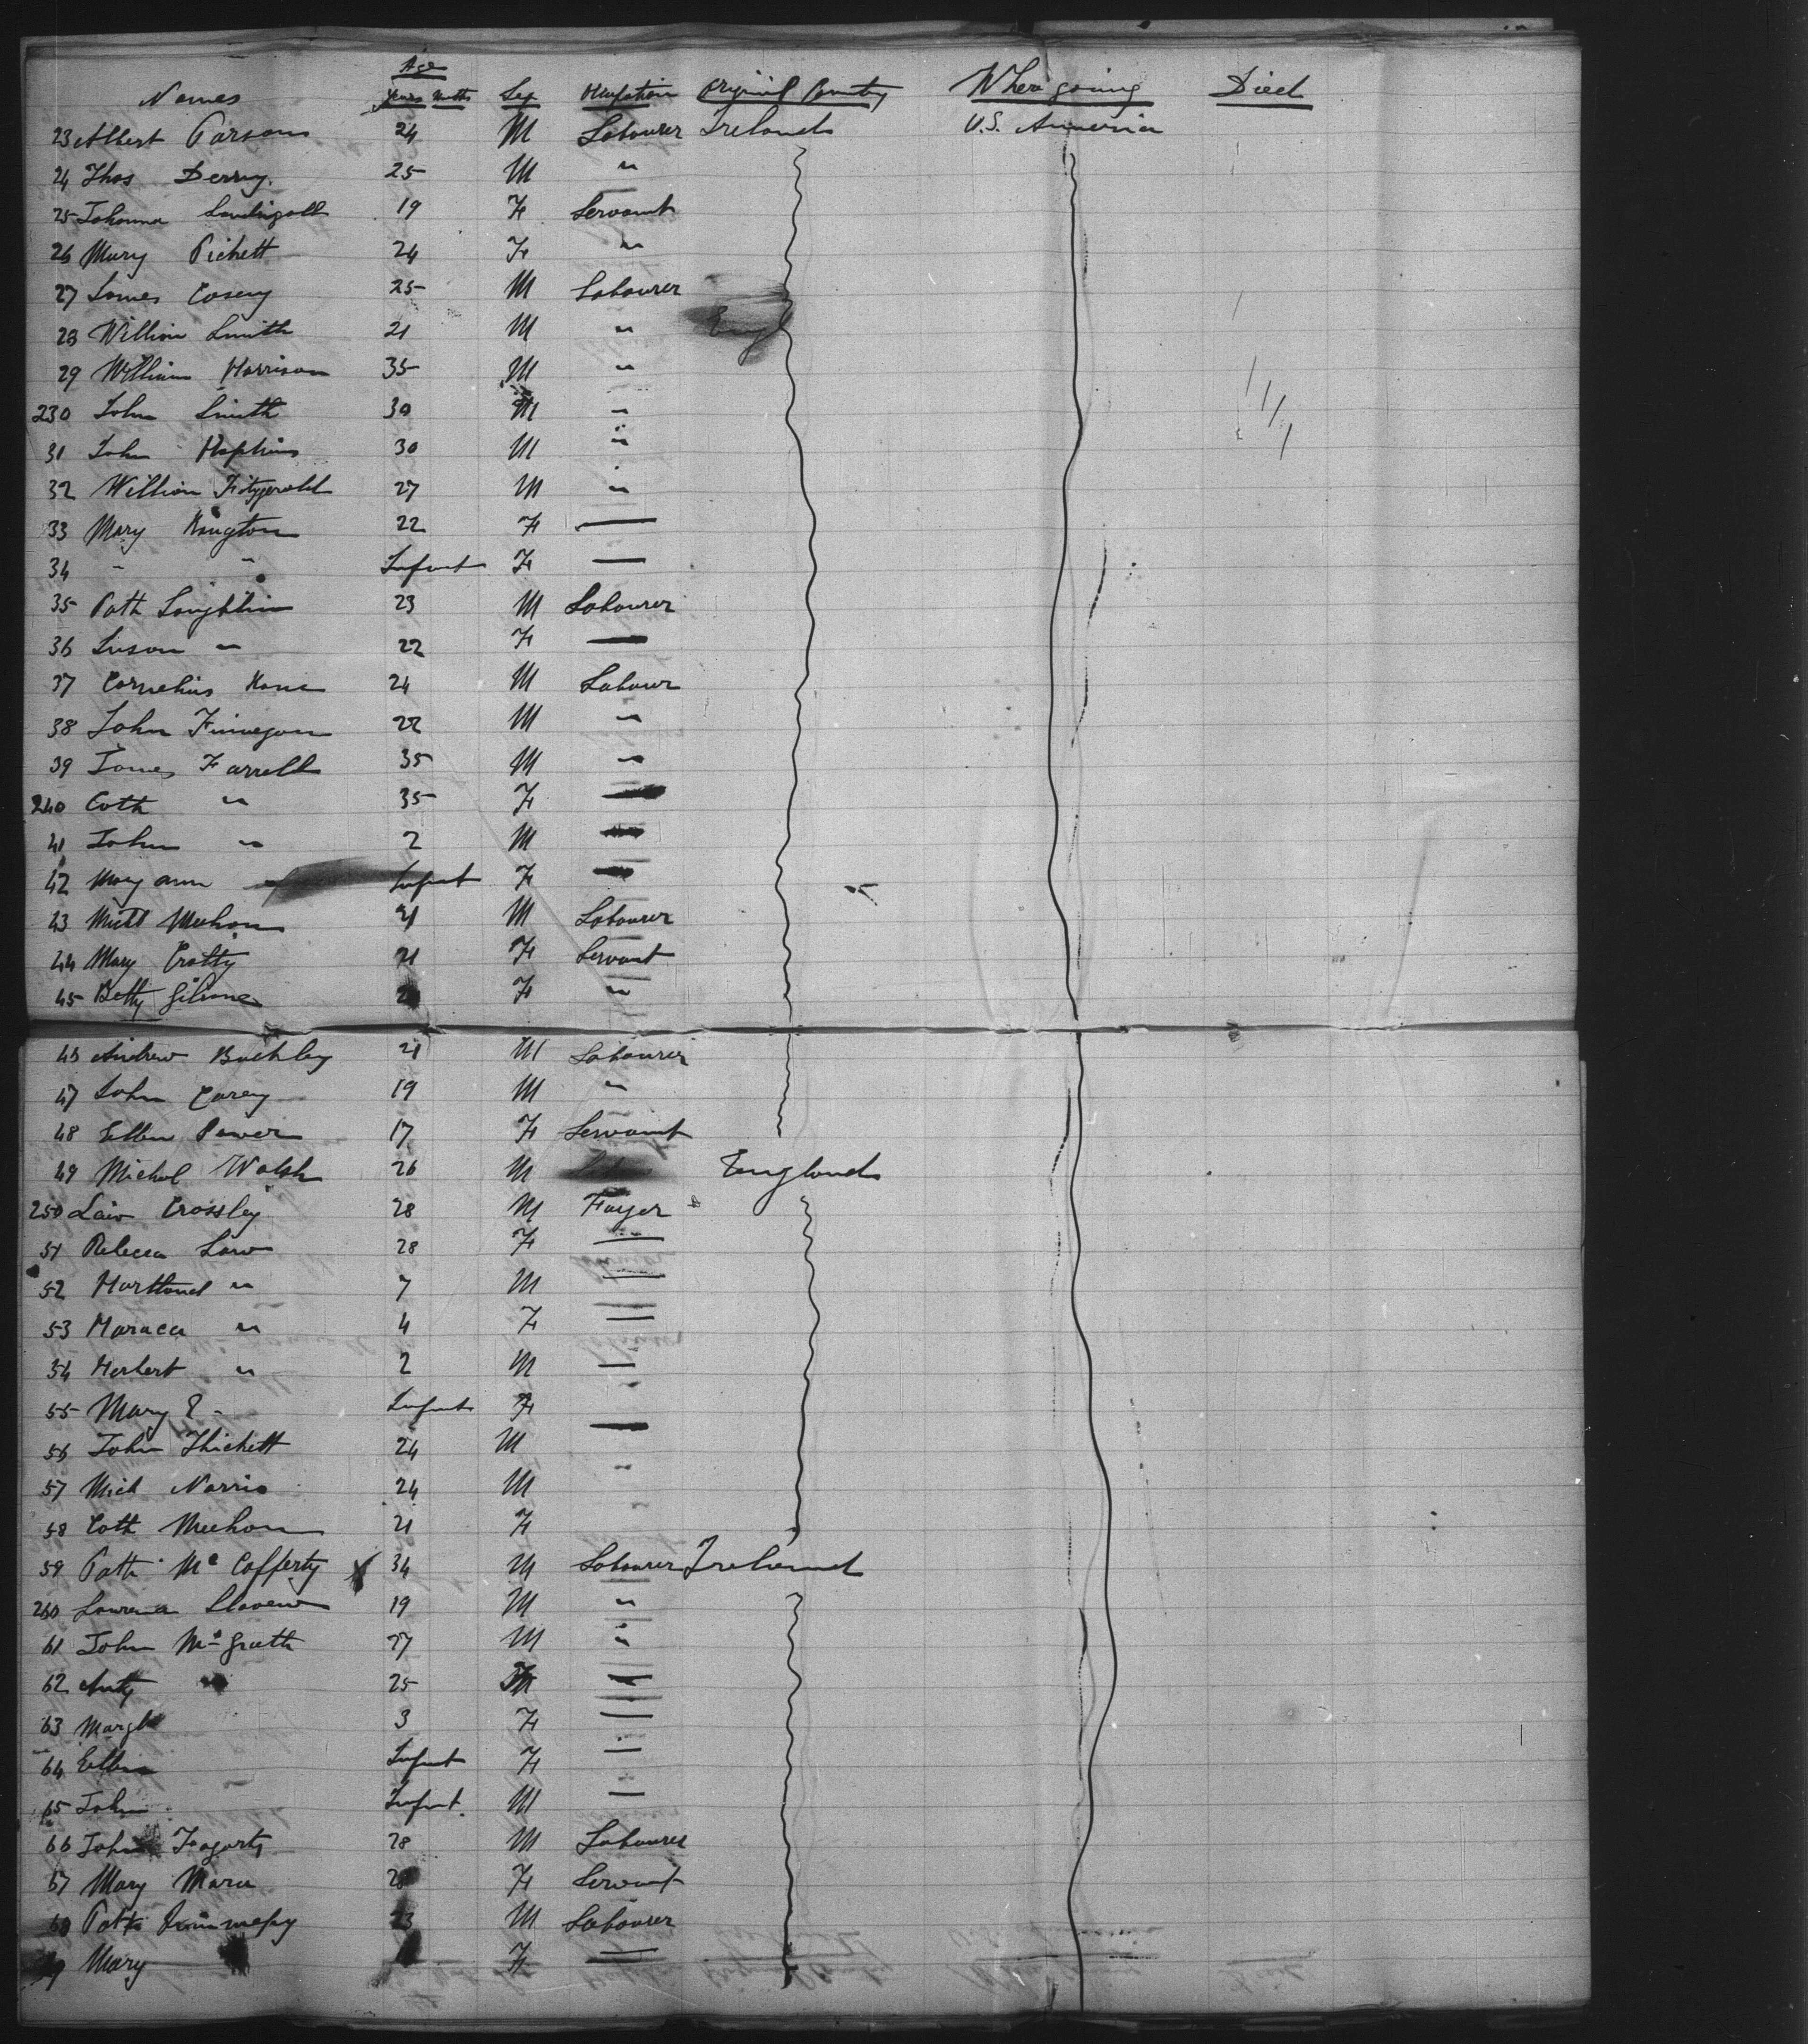 Age
Names years mnths Sex Occupation Original Country Where going Died
23 Albert Parsons 24 M Labourer Ireland U.S. America
24 Thos Derry. 25 M "
25 Johanna 19 F Servant
26 Mary Pickett 24 F "
27 James Casey 25 M Labourer
28 William Smith 21 M " Engl
29 William Harrison 35 M "
230 John Smith 30 M "
31 John Hopkins 30 M "
32 William Fitzgerald 27 M "
33 Mary 22 F —
34 " " Infant F —
35 Patk Loughlin 23 M Labourer
36 Susan " 22 F —
37 Cornelius Kane 24 M Labourer
38 John Finnegan 22 M "
39 James Farrell 35 M "
240 Cath " 35 F —
41 John " 2 M —
42 Mary ann " Infant F —
43 Michl Meehan 21 M Labourer
44 Mary Crotty 21 F Servant
45 Betty F "
46 Andrew Buckley 21 M Labourer
47 John Carey 19 M "
48 Ellen Power 17 F Servant
49 Michal Walsh 26 M England
250 Law Crossley 28 M
51 Rebecca Law 28 F —
52 Hartland " 7 M —
53 " 4 F —
54 Herbert " 2 M —
55 Mary E " Infant F
56 John Thickett 24 M
57 Mich Norris 24 M
58 Cath Meehan 21 F
59 Patk Mc Cafferty X 34 M Labourer Ireland
260 Lawrence Slaven 19 M "
61 John McGrath 27 M "
62 25 F —
63 Margt 3 F —
64 Ellen Infant F —
65 John Infant. M —
66 John Fogarty 28 M Labourer
67 Mary Mara F Servant
68 Patk 23 M Labourer
69 Mary F —